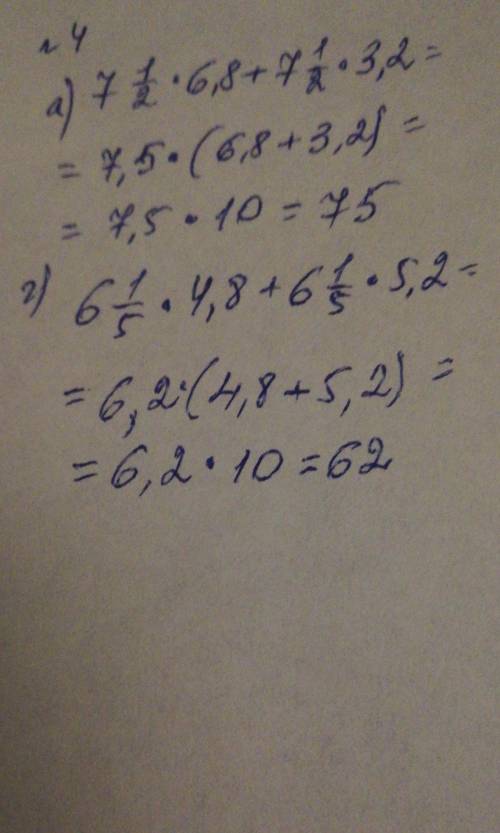 №4
а) 7 1/2 · 6,8 + 7 1/2 · 3,2 =
= 7,5 · (6,8 + 3,2) =
= 7,5 · 10 = 75
г) 6 1/5 · 4,8 + 6 1/5 · 5,2 =
= 6,2 · (4,8 + 5,2) =
= 6,2 · 10 = 62